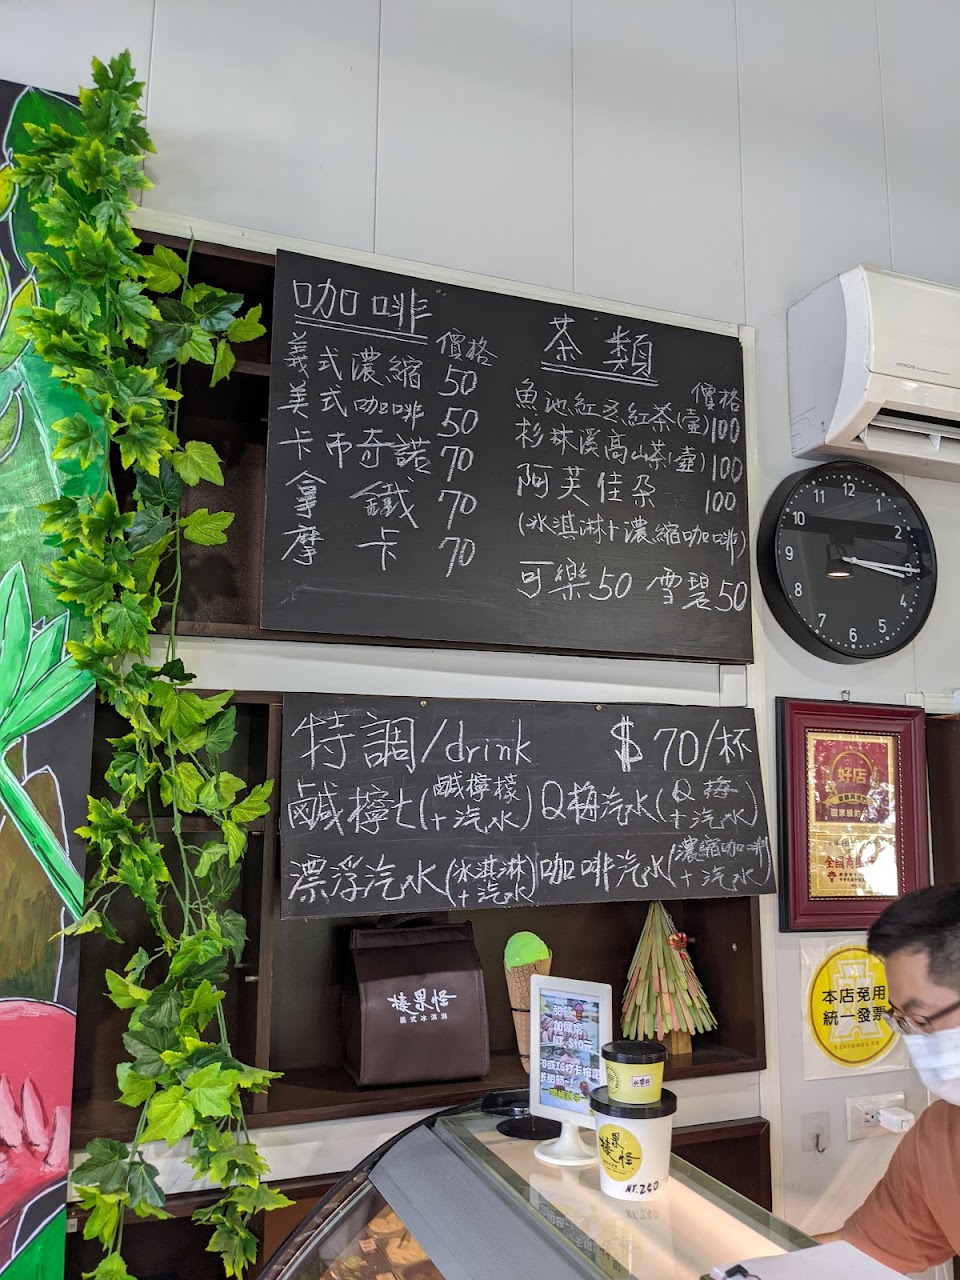 咖啡
價格
義式濃縮 50
美式咖啡 50
卡布奇諾 70
拿鐵 70
摩卡 70
茶類
價格
魚池紅玉紅茶(壺) 100
杉林溪高山茶(壺) 100
阿芙佳朵 100
(冰淇淋+濃縮咖啡)
可樂 50 雪碧 50
HITACHI
12
11
10
9
8
7
6
5
4
2
1
特調/drink $70/杯
鹹檸七(鹹檸檬+汽水) Q梅汽水(Q梅+汽水)
漂浮汽水(冰淇淋+汽水) 咖啡汽水(濃縮咖啡+汽水)
好店
本店免用
統一發票
榛果怪
義式冰淇淋
甜筒
榛果怪
NT.240